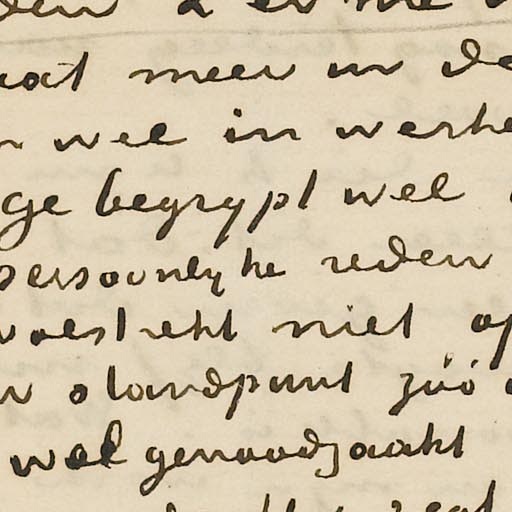 wat meer in de
wel in werke
Ge begrypt wel
persoonlyke reden
volstrekt niet op
standpunt zóó
wel genoodzaakt